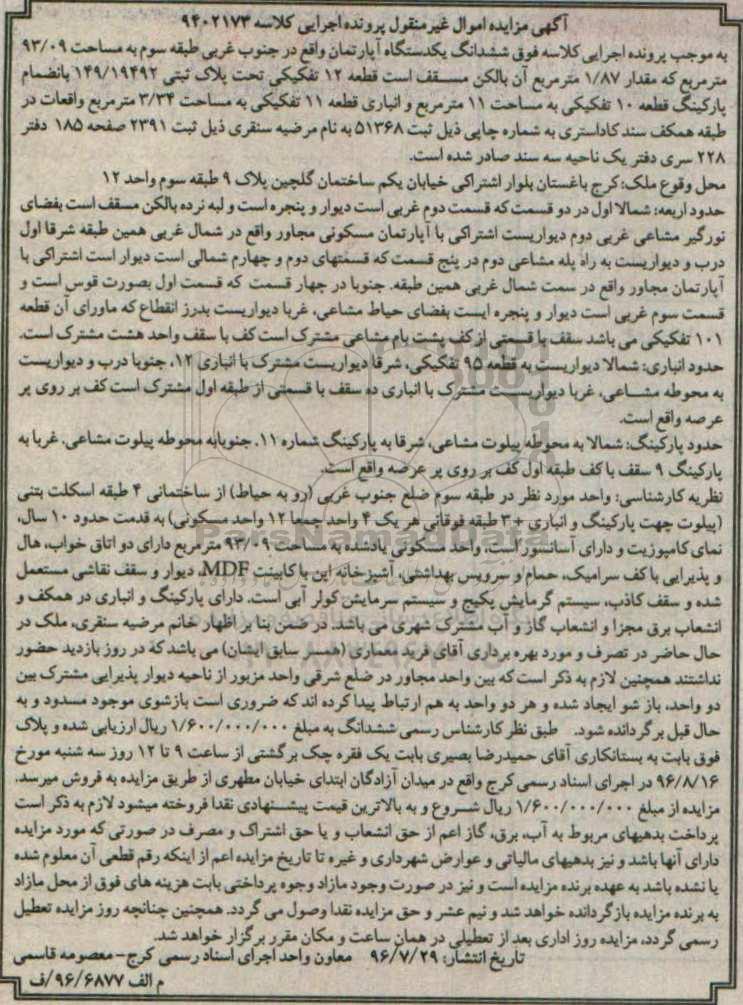 آگهی مزایده اموال غیرمنقول پرونده اجرایی کلاسه ۹۴۰۲۱۷۳
به موجب پرونده اجرایی کلاسه فوق ششدانگ یکدستگاه آپارتمان واقع در جنوب غربی طبقه سوم به مساحت ۹۳/۰۹
مترمربع که مقدار ۱/۸۷ مترمربع آن بالکن مسقف است قطعه ۱۲ تفکیکی تحت پلاک ثبتی ۱۴۹/۱۹۴۹۲ بانضمام
پارکینگ قطعه ۱۰ تفکیکی به مساحت ۱۱ مترمربع و انباری قطعه ۱۱ تفکیکی به مساحت ۳/۳۴ مترمربع واقعات در
طبقه همکف سند کاداستری به شماره چاپی ذیل ثبت ۵۱۳۶۸ به نام مرضیه سنقری ذیل ثبت ۲۳۹۱ صفحه ۱۸۵ دفتر
۲۲۸ سری دفتر یک ناحیه سه سند صادر شده است.
محل وقوع ملک: کرج باغستان بلوار اشتراکی خیابان یکم ساختمان گلچین پلاک ۹ طبقه سوم واحد ۱۲
حدود اربعه: شمالا اول در دو قسمت که قسمت دوم غربی است دیوار و پنجره است و لبه نرده بالکن مسقف است بفضای
نورگیر مشاعی غربی دوم دیواریست اشتراکی با آپارتمان مسکونی مجاور واقع در شمال غربی همین طبقه شرقا اول
درب و دیواریست به راه پله مشاعی دوم در پنج قسمت که قسمتهای دوم و چهارم شمالی است دیوار است اشتراکی با
آپارتمان مجاور واقع در سمت شمال غربی همین طبقه. جنوبا در چهار قسمت که قسمت اول بصورت قوس است و
قسمت سوم غربی است دیوار و پنجره ایست بفضای حیاط مشاعی، غربا دیواریست بدرز انقطاع که ماورای آن قطعه
۱۰۱ تفکیکی می باشد سقف با قسمتی از کف پشت بام مشاعی مشترک است کف با سقف واحد هشت مشترک است.
حدود انباری: شمالا دیواریست به قطعه ۹۵ تفکیکی، شرقا دیواریست مشترک با انباری ۱۲، جنوبا درب و دیواریست
به محوطه مشاعی، غربا دیواریست مشترک با انباری ده سقف با قسمتی از طبقه اول مشترک است کف بر روی پر
عرصه واقع است.
حدود پارکینگ: شمالا به محوطه پیلوت مشاعی، شرقا به پارکینگ شماره ۱۱، جنوبا به محوطه پیلوت مشاعی. غربا به
پارکینگ ۹ سقف با کف طبقه اول کف بر روی پر عرضه واقع است.
نظریه کارشناسی: واحد مورد نظر در طبقه سوم ضلع جنوب غربی (رو به حیاط) از ساختمانی ۴ طبقه اسکلت بتنی
(پیلوت جهت پارکینگ و انباری +۳ طبقه فوقانی هر یک ۴ واحد جمعا ۱۲ واحد مسکونی) به قدمت حدود ۱۰ سال،
نمای کامپوزیت و دارای آسانسور است، واحد مسکونی یادشده به مساحت ۹۳/۰۹ مترمربع دارای دو اتاق خواب، هال
و پذیرایی با کف سرامیک، حمام و سرویس بهداشتی، آشپزخانه اپن با کابینت MDF، دیوار و سقف نقاشی مستعمل
شده و سقف کاذب، سیستم گرمایش پکیج و سیستم سرمایش کولر آبی است. دارای پارکینگ و انباری در همکف و
انشعاب برق مجزا و انشعاب گاز و آب مشترک شهری می باشد. در ضمن بنا بر اظهار خانم مرضیه سنقری، ملک در
حال حاضر در تصرف و مورد بهره برداری آقای فرید معماری (همسر سابق ایشان) می باشد که در روز بازدید حضور
نداشتند همچنین لازم به ذکر است که بین واحد مجاور در ضلع شرقی واحد مزبور از ناحیه دیوار پذیرایی مشترک بین
دو واحد، باز شو ایجاد شده و هر دو واحد به هم ارتباط پیدا کرده اند که ضروری است بازشوی موجود مسدود و به
حال قبل برگردانده شود. طبق نظر کارشناس رسمی ششدانگ به مبلغ ۱/۶۰۰/۰۰۰/۰۰۰ ریال ارزیابی شده و پلاک
فوق بابت به بستانکاری آقای حمیدرضا بصیری بابت یک فقره چک برگشتی از ساعت ۹ تا ۱۲ روز سه شنبه مورخ
۹۶/۸/۱۶ در اجرای اسناد رسمی کرج واقع در میدان آزادگان ابتدای خیابان مطهری از طریق مزایده به فروش میرسد.
مزایده از مبلغ ۱/۶۰۰/۰۰۰/۰۰۰ ریال شروع و به بالاترین قیمت پیشنهادی نقدا فروخته میشود لازم به ذکر است
پرداخت بدهیهای مربوط به آب، برق، گاز اعم از حق انشعاب و یا حق اشتراک و مصرف در صورتی که مورد مزایده
دارای آنها باشد و نیز بدهیهای مالیاتی و عوارض شهرداری و غیره تا تاریخ مزایده اعم از اینکه رقم قطعی آن معلوم شده
یا نشده باشد به عهده برنده مزایده است و نیز در صورت وجود مازاد وجوه پرداختی بابت هزینه های فوق از محل مازاد
به برنده مزایده بازگردانده خواهد شد و نیم عشر و حق مزایده نقدا وصول می گردد. همچنین چنانچه روز مزایده تعطیل
رسمی گردد، مزایده روز اداری بعد از تعطیلی در همان ساعت و مکان مقرر برگزار خواهد شد.
تاریخ انتشار: ۹۶/۷/۲۹ معاون واحد اجرای اسناد رسمی کرج- معصومه قاسمی
م الف ۹۶/۶۸۷۷/ف
ParsNamadData